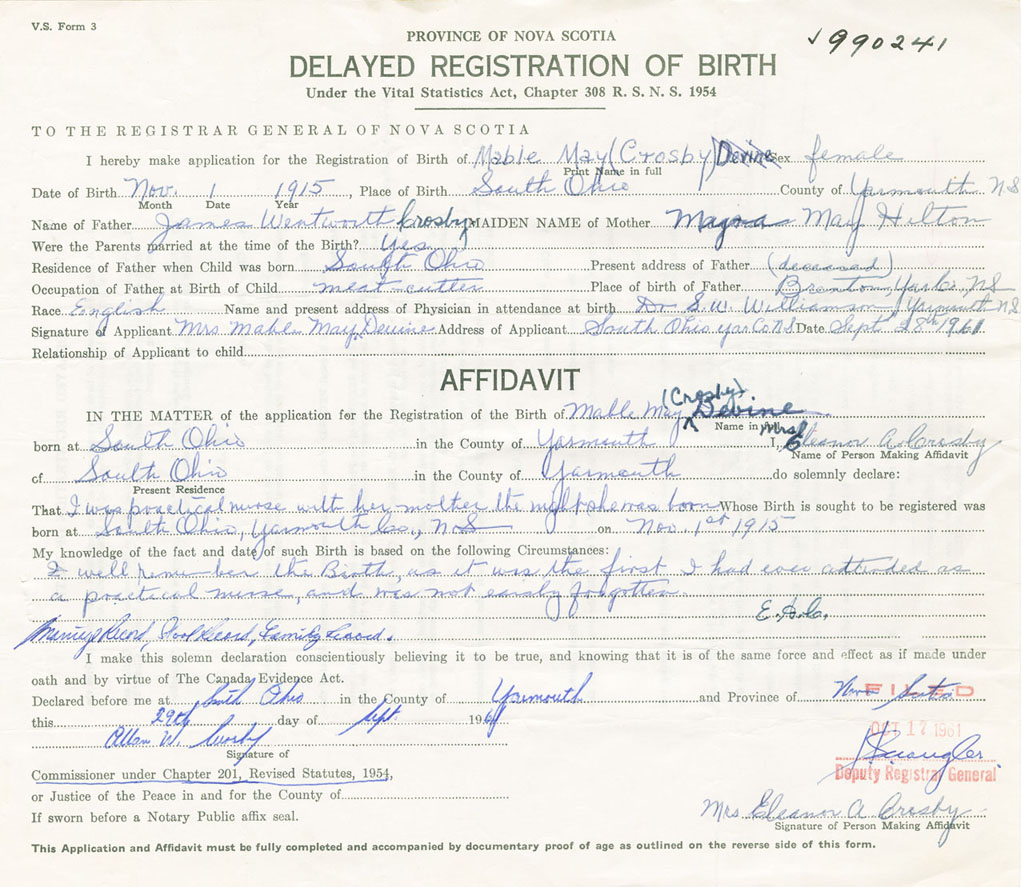 V.S. Form 3
PROVINCE OF NOVA SCOTIA
√990241
DELAYED REGISTRATION OF BIRTH
Under the Vital Statistics Act, Chapter 308 R. S. N. S. 1954
TO THE REGISTRAR GENERAL OF NOVA SCOTIA
I hereby make application for the Registration of Birth of Mable May (Crosby) Devine Sex female
Print Name in full
Date of Birth Nov. 1 1915, Place of Birth South Ohio County of Yarmouth NS
Month Date Year
Name of Father James Wentworth Crosby MAIDEN NAME of Mother May Hilton
Were the Parents married at the time of the Birth? Yes
Residence of Father when Child was born South Ohio Present address of Father (deceased)
Occupation of Father at Birth of Child meat cutter Place of birth of Father Brenton, Yar Co., NS
Race English Name and present address of Physician in attendance at birth Dr S.W. Williamson, Yarmouth NS
Signature of Applicant Mrs Mable May Devine Address of Applicant South Ohio Yar Co NS Date Sept 28th 1961
Relationship of Applicant to child
AFFIDAVIT
IN THE MATTER of the application for the Registration of the Birth of Mable May (Crosby) Devine
Name in full
born at South Ohio in the County of Yarmouth I, Mrs Eleanor A Crosby
Name of Person Making Affidavit
of South Ohio in the County of Yarmouth do solemnly declare:
Present Residence
That I was practical nurse with her mother the night she was born Whose Birth is sought to be registered was
born at South Ohio, Yarmouth Co., N S on Nov. 1st 1915
My knowledge of the fact and date of such Birth is based on the following Circumstances:
I well remember the Birth, as it was the first I had ever attended as
a practical nurse, and was not easily forgotten.
E.A.C.
Record, Record, Family Record.
I make this solemn declaration conscientiously believing it to be true, and knowing that it is of the same force and effect as if made under
oath and by virtue of The Canada Evidence Act.
Declared before me at South Ohio in the County of Yarmouth and Province of Nova Scotia
FILED
this 29th day of Sept 1961
OCT 17 1961
Allan W. Crosby
Signature of
Deputy Registrar General
Commissioner under Chapter 201, Revised Statutes, 1954,
or Justice of the Peace in and for the County of
Mrs Eleanor A Crosby
If sworn before a Notary Public affix seal.
Signature of Person Making Affidavit
This Application and Affidavit must be fully completed and accompanied by documentary proof of age as outlined on the reverse side of this form.